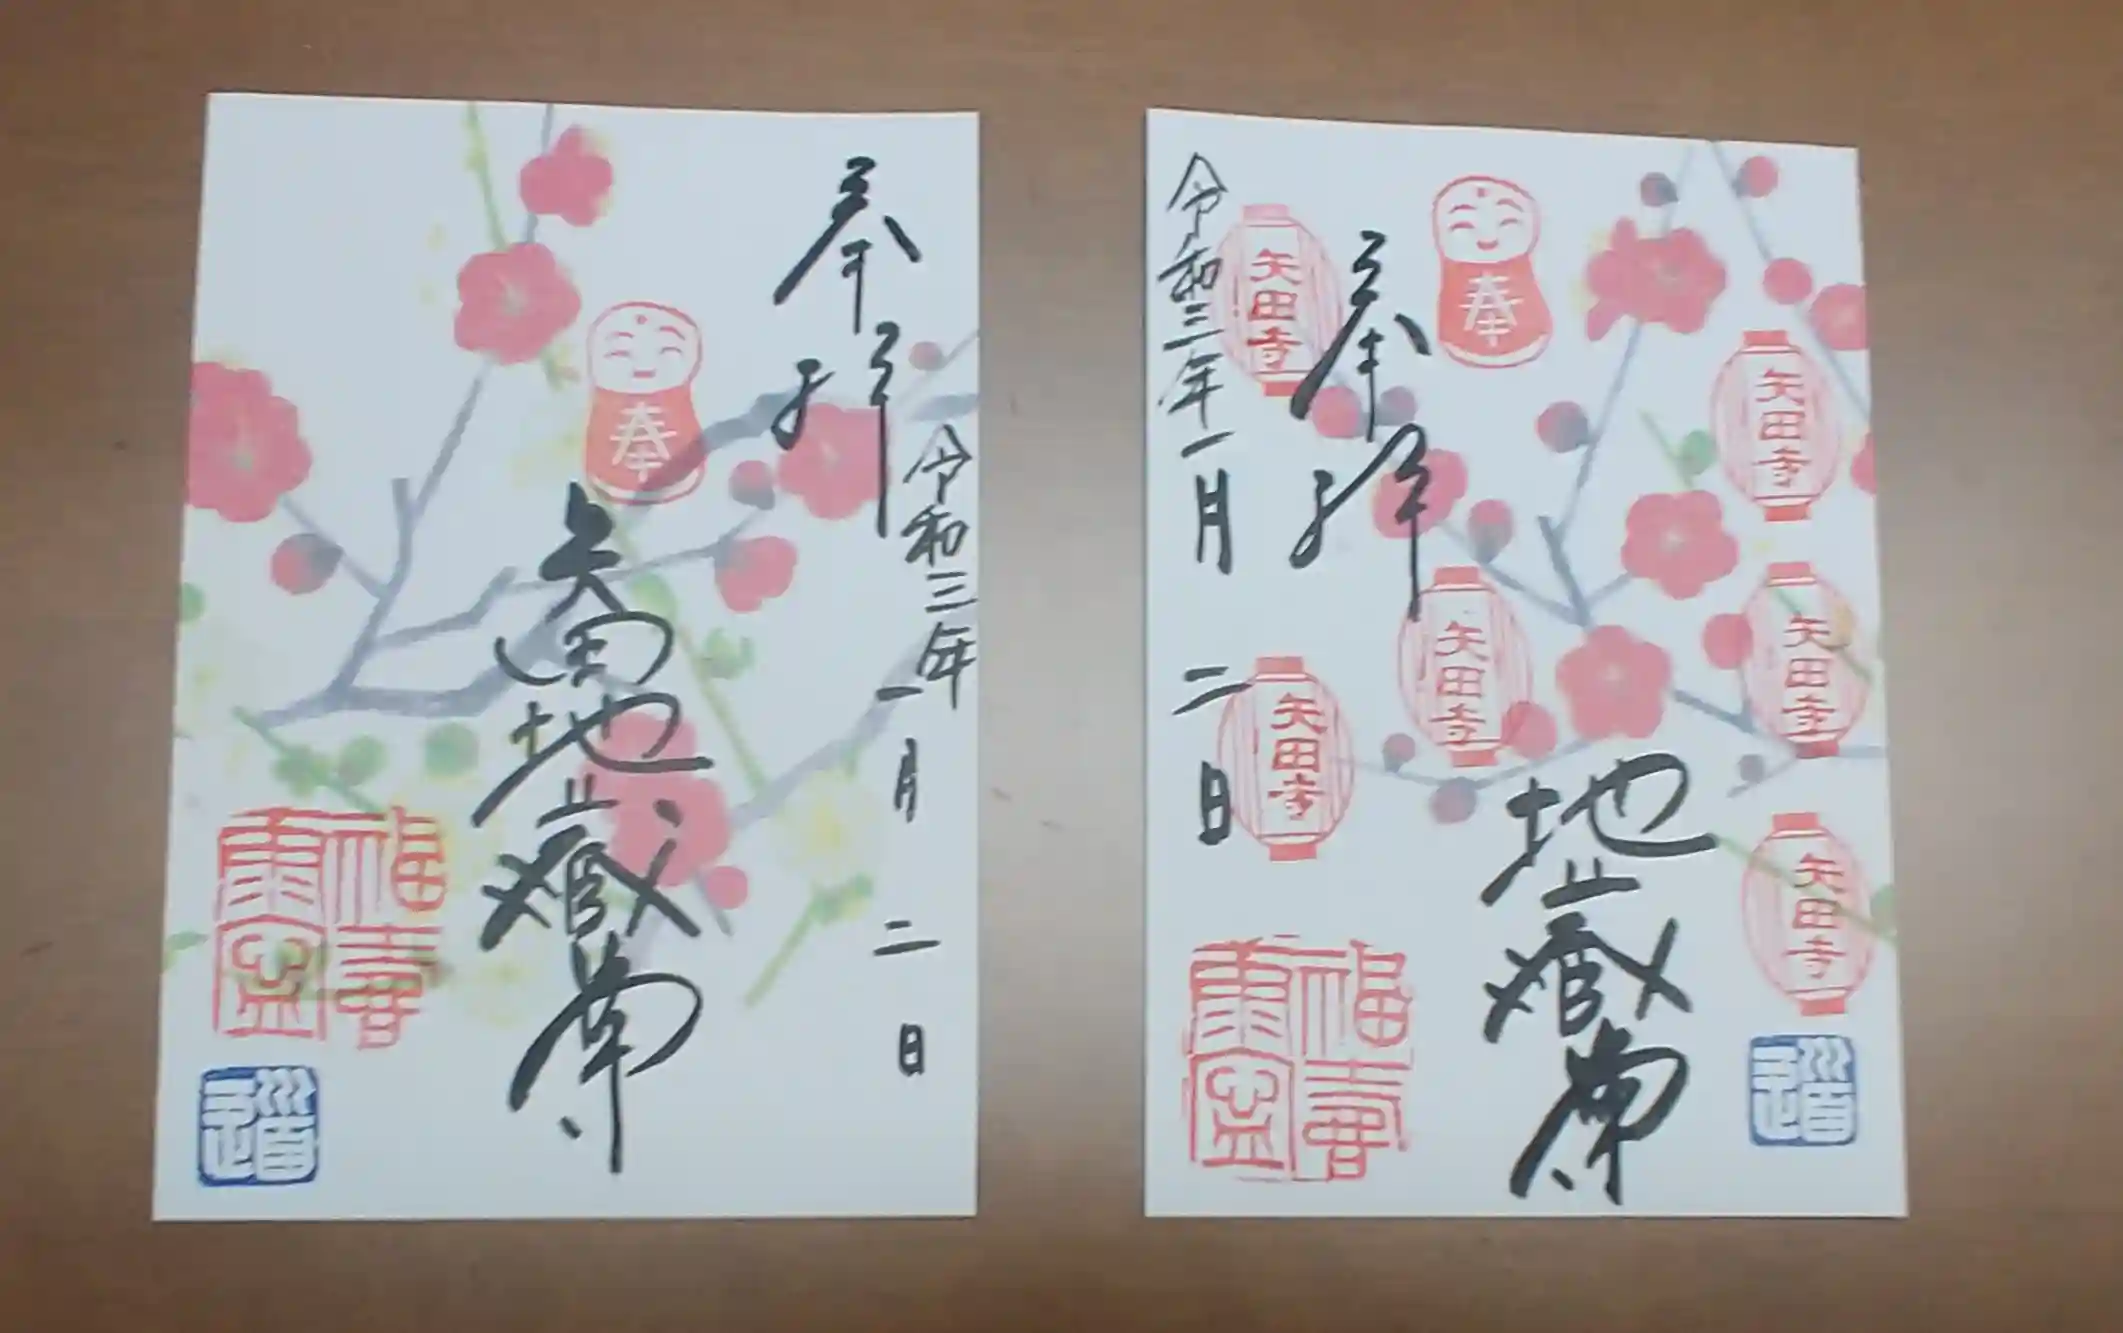 奉拝
令和三年
一月
二日
奉
矢田地蔵尊
福寿
道
奉
奉拝
令和三年一月
二日
矢田寺
矢田寺
矢田寺
矢田寺
矢田寺
矢田寺
地蔵尊
福寿
道